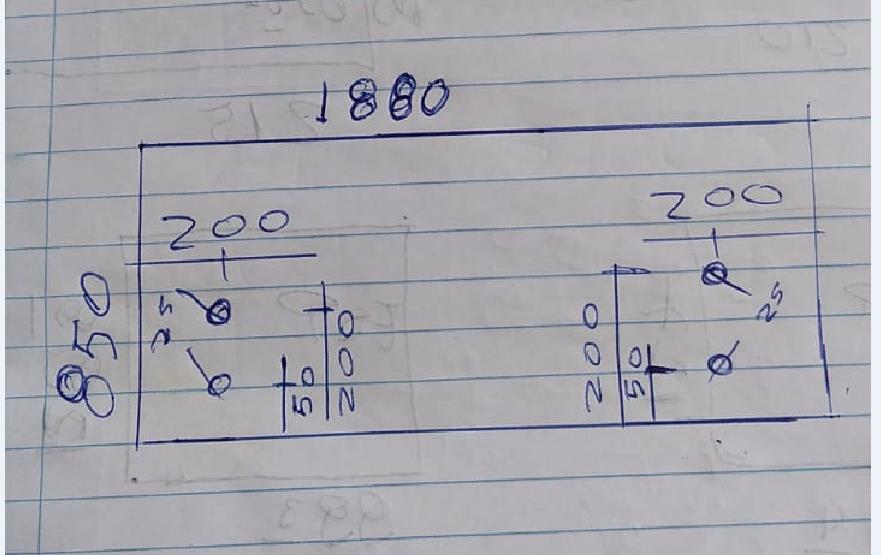 1880
200
200
850
25
25
200
50
50
200